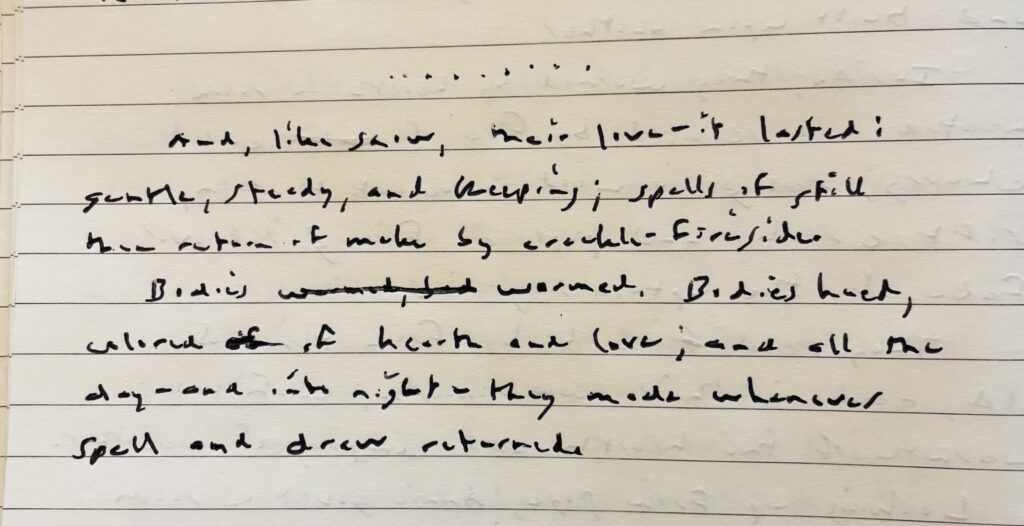 . . . . . . . . .
And, like snow, their love—it lasted:
gentle, steady, and keeping; spells of still
then return of make by crackle-fireside.
Bodies warmed. Bodies hued,
colored of hearth and love; and all the
day—and into night—they made whenever
spell and draw returned.